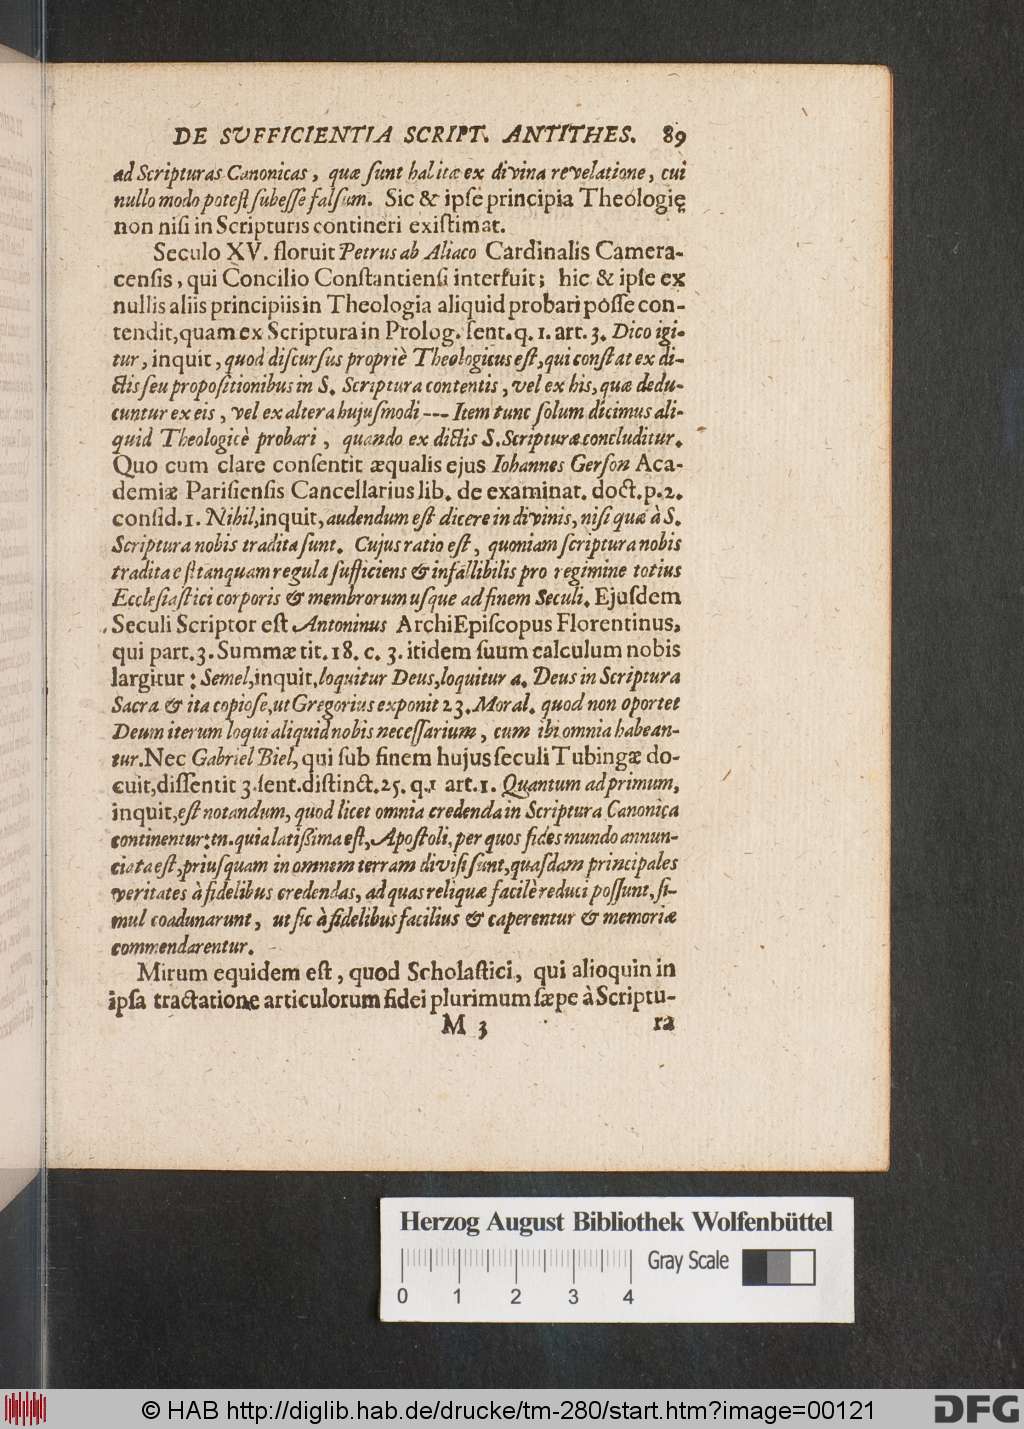 DE SVFFICIENTIA SCRIPT. ANTITHES. 89
ad Scripturas Canonicas, quæ ſunt halitæ ex divina revelatione, cui
nullo modo poteſt ſubeſſe falſum. Sic & ipſe principia Theologię
non niſi in Scripturis contineri exiſtimat.
Seculo XV. floruit Petrus ab Aliaco Cardinalis Camera-
cenſis, qui Concilio Conſtantienſi interfuit; hic & ipſe ex
nullis aliis principiis in Theologia aliquid probari poſſe con-
tendit, quam ex Scriptura in Prolog. ſent. q. 1. art. 3. Dico igi-
tur, inquit, quod diſcurſus propriè Theologicus eſt, qui conſtat ex di-
ctis ſeu propoſitionibus in S. Scriptura contentis, vel ex his, quæ dedu-
cuntur ex eis, vel ex altera hujuſmodi --- Item tunc ſolum dicimus ali-
quid Theologicè probari, quando ex dictis S. Scripturæ concluditur.
Quo cum clare conſentit æqualis ejus Iohannes Gerſon Aca-
demiæ Pariſienſis Cancellarius lib. de examinat. doct. p. 2.
conſid. 1. Nihil, inquit, audendum eſt dicere in divinis, niſi quæ à S.
Scriptura nobis tradita ſunt. Cujus ratio eſt, quoniam ſcriptura nobis
tradita eſt tanquam regula ſufficiens & infallibilis pro regimine totius
Eccleſiaſtici corporis & membrorum uſque ad finem Seculi. Ejuſdem
Seculi Scriptor eſt Antoninus ArchiEpiſcopus Florentinus,
qui part. 3. Summæ tit. 18. c. 3. itidem ſuum calculum nobis
largitur: Semel, inquit, loquitur Deus, loquitur a. Deus in Scriptura
Sacra & ita copioſe, ut Gregorius exponit 23. Moral. quod non oportet
Deum iterum loqui aliquid nobis neceſſarium, cum ibi omnia habean-
tur. Nec Gabriel Biel, qui ſub finem hujus ſeculi Tubingæ do-
cuit, diſſentit 3. ſent. diſtinct. 25. q. 1 art. 1. Quantum ad primum,
inquit, eſt notandum, quod licet omnia credenda in Scriptura Canonica
continentur: tn. quia latiſſima eſt, Apoſtoli, per quos fides mundo annun-
ciata eſt, priuſquam in omnem terram diviſi ſunt, quaſdam principales
veritates à fidelibus credendas, ad quas reliquæ facilè reduci poſſunt, ſi-
mul coadunarunt, ut ſic à fidelibus facilius & caperentur & memoriæ
commendarentur.
Mirum equidem eſt, quod Scholaſtici, qui alioquin in
ipſa tractatione articulorum fidei plurimum ſæpe à Scriptu-
M 3 ra
Herzog August Bibliothek Wolfenbüttel
Gray Scale
0 1 2 3 4
© HAB http://diglib.hab.de/drucke/tm-280/start.htm?image=00121
DFG